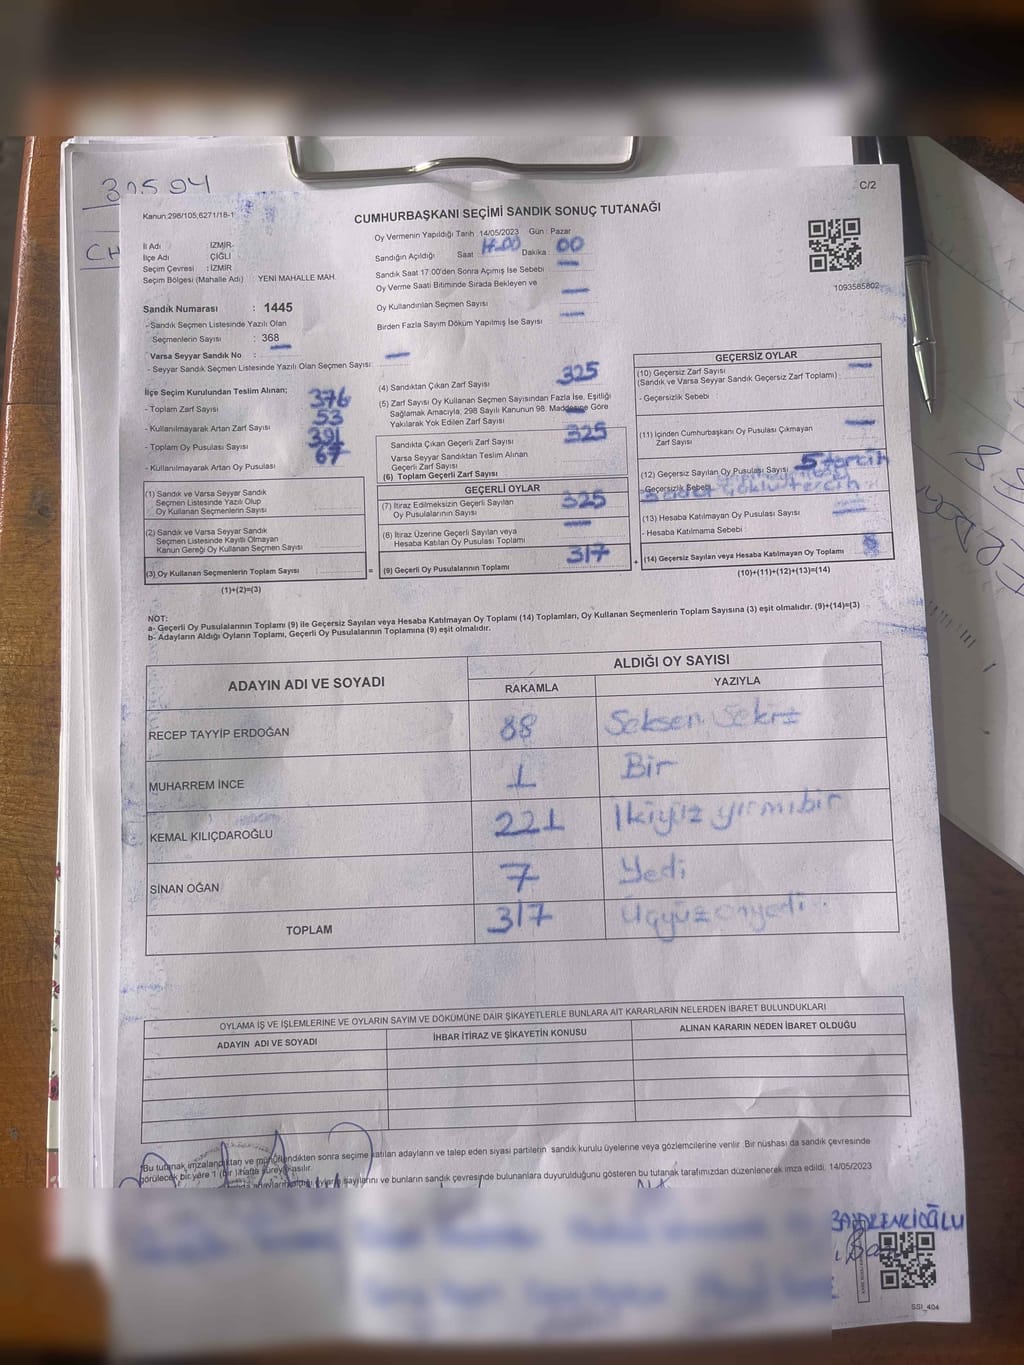 30594
C/2
Kanun:298/105;6271/18-1
CUMHURBAŞKANI SEÇİMİ SANDIK SONUÇ TUTANAĞI
İl Adı : İZMİR
İlçe Adı ÇİĞLİ
Seçim Çevresi : İZMİR
Seçim Bölgesi (Mahalle Adı) : YENİ MAHALLE MAH.
Oy Vermenin Yapıldığı Tarih :14/05/2023 Gün : Pazar
Sandığın Açıldığı Saat 17.00 Dakika : 00
Sandık Saat 17:00'den Sonra Açımış İse Sebebi
Oy Verme Saati Bitiminde Sırada Bekleyen ve
Oy Kullandırılan Seçmen Sayısı
Birden Fazla Sayım Döküm Yapılmış İse Sayısı
1093585802
Sandık Numarası : 1445
- Sandık Seçmen Listesinde Yazılı Olan
Seçmenlerin Sayısı : 368
Varsa Seyyar Sandık No :
- Seyyar Sandık Seçmen Listesinde Yazılı Olan Seçmen Sayısı:
İlçe Seçim Kurulundan Teslim Alınan;
- Toplam Zarf Sayısı 376
- Kullanılmayarak Artan Zarf Sayısı 53
- Toplam Oy Pusulası Sayısı 391
- Kullanılmayarak Artan Oy Pusulası 67
(1) Sandık ve Varsa Seyyar Sandık
Seçmen Listesinde Yazılı Olup
Oy Kullanan Seçmenlerin Sayısı
(2) Sandık ve Varsa Seyyar Sandık
Seçmen Listesinde Kayıtlı Olmayan
Kanun Gereği Oy Kullanan Seçmen Sayısı
(3) Oy Kullanan Seçmenlerin Toplam Sayısı
(1)+(2)=(3)
(4) Sandıktan Çıkan Zarf Sayısı 325
(5) Zarf Sayısı Oy Kullanan Seçmen Sayısından Fazla İse, Eşitliği
Sağlamak Amacıyla, 298 Sayılı Kanunun 98. Maddesine Göre
Yakılarak Yok Edilen Zarf Sayısı
Sandıkta Çıkan Geçerli Zarf Sayısı 325
Varsa Seyyar Sandıktan Teslim Alınan
Geçerli Zarf Sayısı
(6) Toplam Geçerli Zarf Sayısı
GEÇERLİ OYLAR
(7) İtiraz Edilmeksizin Geçerli Sayılan
Oy Pusulalarının Sayısı 325
(8) İtiraz Üzerine Geçerli Sayılan veya
Hesaba Katılan Oy Pusulası Toplamı
= (9) Geçerli Oy Pusulalarının Toplamı 317
GEÇERSİZ OYLAR
(10) Geçersiz Zarf Sayısı
(Sandık ve Varsa Seyyar Sandık Geçersiz Zarf Toplamı)
- Geçersizlik Sebebi
(11) İçinden Cumhurbaşkanı Oy Pusulası Çıkmayan
Zarf Sayısı
(12) Geçersiz Sayılan Oy Pusulası Sayısı 5 tercih
-Geçersizlik Sebebi
(13) Hesaba Katılmayan Oy Pusulası Sayısı
- Hesaba Katılmama Sebebi
+ (14) Geçersiz Sayılan veya Hesaba Katılmayan Oy Toplamı 8
(10)+(11)+(12)+(13)=(14)
NOT:
a- Geçerli Oy Pusulalarının Toplamı (9) ile Geçersiz Sayılan veya Hesaba Katılmayan Oy Toplamı (14) Toplamları, Oy Kullanan Seçmenlerin Toplam Sayısına (3) eşit olmalıdır. (9)+(14)=(3)
b- Adayların Aldığı Oyların Toplamı, Geçerli Oy Pusulalarının Toplamına (9) eşit olmalıdır.
ADAYIN ADI VE SOYADI
ALDIĞI OY SAYISI
RAKAMLA YAZIYLA
RECEP TAYYİP ERDOĞAN 88 Seksen Sekiz
MUHARREM İNCE 1 Bir
KEMAL KILIÇDAROĞLU 221 İkiyüz yirmibir
SİNAN OĞAN 7 Yedi
TOPLAM 317 Üçyüzonyedi
OYLAMA İŞ VE İŞLEMLERİNE VE OYLARIN SAYIM VE DÖKÜMÜNE DAİR ŞİKAYETLERLE BUNLARA AİT KARARLARIN NELERDEN İBARET BULUNDUKLARI
ADAYIN ADI VE SOYADI İHBAR İTİRAZ VE ŞİKAYETİN KONUSU ALINAN KARARIN NEDEN İBARET OLDUĞU
"Bu tutanak imzalandıktan ve mühürlendikten sonra seçime katılan adayların ve talep eden siyasi partilerin sandık kurulu üyelerine veya gözlemcilerine verilir. Bir nüshası da sandık çevresinde
görülecek bir yere 1 (bir) hafta süreyle asılır.
oy sayılarını ve bunların sandık çevresinde bulunanlara duyurulduğunu gösteren bu tutanak tarafımızdan düzenlenerek imza edildi. 14/05/2023
SSI_404